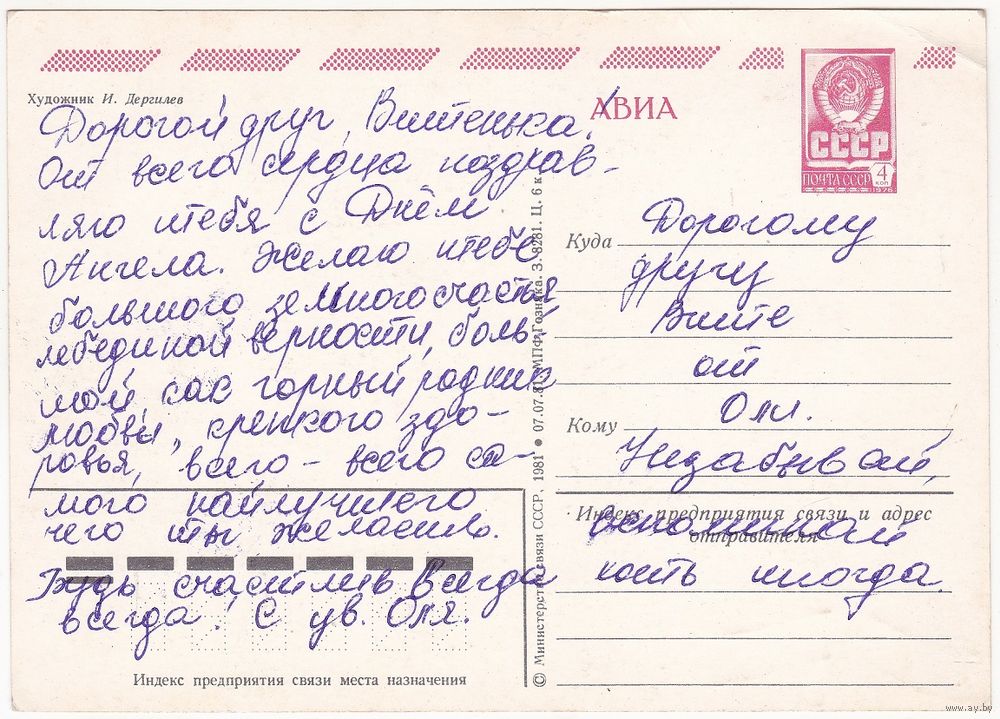 Художник И. Дергилев
Дорогой друг, Витенька!
От всего сердца поздрав-
ляю тебя с Днём
Ангела. Желаю тебе
большого земного счастья
лебединой верности, боль-
шой как горный родник
любви, крепкого здо-
ровья, всего-всего са-
мого наилучшего
чего ты желаешь.
Будь счастлив всегда
всегда! С ув. Оля.
Индекс предприятия связи места назначения
© Министерство связи СССР, 1981 ● 07.07.81. МПФ Гознака. З. 8281. Ц. 6 к
АВИА
СССР
ПОЧТА СССР 4 коп
1976
Куда Дорогому
другу
Вите
от
Кому Оли.
Незабывай,
Индекс предприятия связи и адрес
отправителя
вспоминай
хоть иногда.
www.ay.by